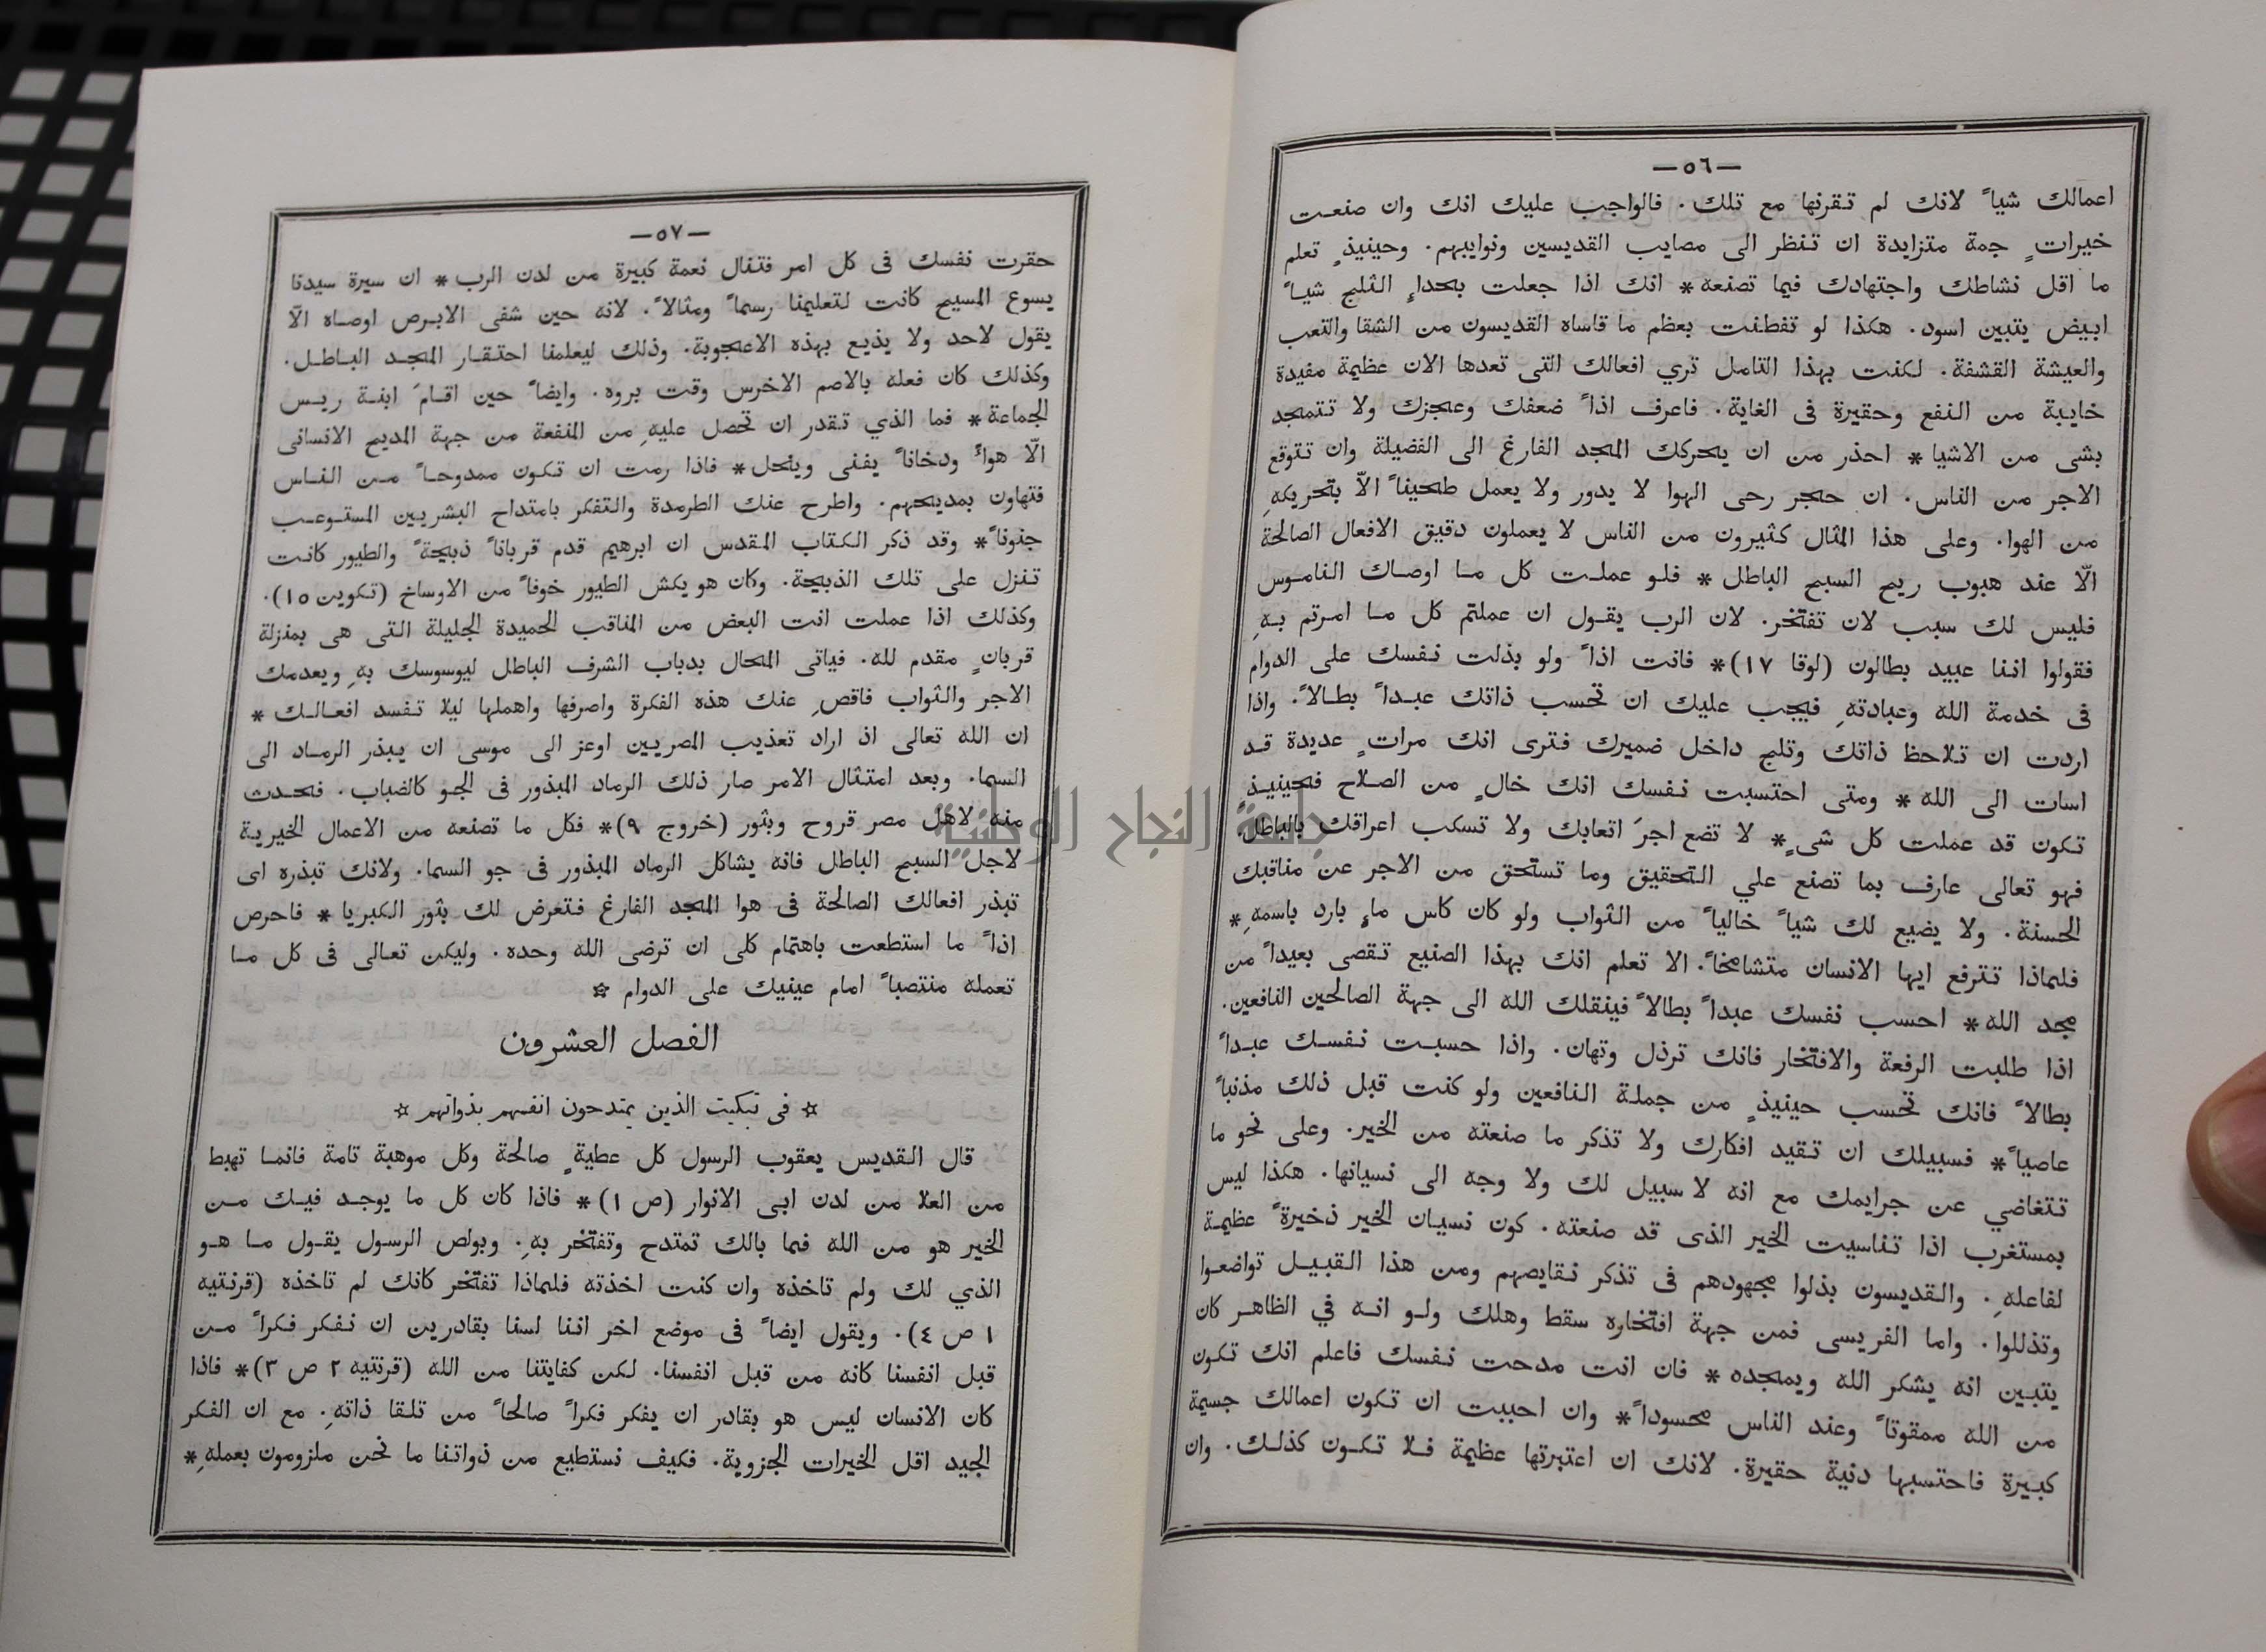 —٥٦—
اعمالك شياً لانك لم تقرنها مع تلك. فالواجب عليك انك وان صنعت
خيراتٍ جمة متزايدة ان تنظر الى مصايب القديسين ونوايبهم. وحينيذٍ تعلم
ما اقل نشاطك واجتهادك فيما تصنعه* انك اذا جعلت بحداءِ الثلج شياً
ابيض يتبين اسود. هكذا لو تفطنت بعظم ما قاساه القديسون من الشقا والتعب
والعيشة القشفة. لكنت بهذا التامل تري افعالك التى تعدها الان عظيمة مفيدة
خايبة من النفع وحقيرة فى الغاية. فاعرف اذاً ضعفك وعجزك ولا تتمجد
بشى من الاشيا* احذر من ان يحركك المجد الفارغ الى الفضيلة وان تتوقع
الاجر من الناس. ان حجر رحى الهوا لا يدور ولا يعمل طحيناً الّا بتحريكهِ
من الهوا. وعلى هذا المثال كثيرون من الناس لا يعملون دقيق الافعال الصالحة
الّا عند هبوب ريح السبح الباطل* فلو عملت كل ما اوصاك الناموس
فليس لك سبب لان تفتخر. لان الرب يقول ان عملتم كل ما امرتم بهِ
فقولوا اننا عبيد بطالون (لوقا ١٧)* فانت اذاً ولو بذلت نفسك على الدوام
فى خدمة الله وعبادتهِ فيجب عليك ان تحسب ذاتك عبداً بطالاً. واذا
اردت ان تلاحظ ذاتك وتلج داخل ضميرك فترى انك مراتٍ عديدة قد
اسات الى الله* ومتى احتسبت نفسك انك خالٍ من الصلاح فحينيذٍ
تكون قد عملت كل شىٍ* لا تضع اجرَ اتعابك ولا تسكب اعراقك بالباطل.
فهو تعالى عارف بما تصنع علي التحقيق وما تستحق من الاجر عن مناقبك
الحسنة. ولا يضيع لك شياً خالياً من الثواب ولو كان كاس ماءٍ بارد باسمهِ*
فلماذا تترفع ايها الانسان متشامخاً. الا تعلم انك بهذا الصنيع تقصى بعيداً من
مجد الله* احسب نفسك عبداً بطالاً فينقلك الله الى جهة الصالحين النافعين.
اذا طلبت الرفعة والافتخار فانك ترذل وتهان. واذا حسبت نفسك عبداً
بطالاً فانك تحسب حينيذٍ من جملة النافعين ولو كنت قبل ذلك مذنباً
عاصياً* فسبيلك ان تقيد افكارك ولا تذكر ما صنعته من الخير. وعلى نحو ما
تتغاضي عن جرايمك مع انه لا سبيل لك ولا وجه الى نسيانها. هكذا ليس
بمستغرب اذا تناسيت الخير الذى قد صنعته. كون نسيان الخير ذخيرةً عظيمة
لفاعلهِ. والقديسون بذلوا مجهودهم فى تذكر نقايصهم ومن هذا القبيل تواضعوا
وتذللوا. واما الفريسى فمن جهة افتخاره سقط وهلك ولو انه في الظاهر كان
يتبين انه يشكر الله ويمجده* فان انت مدحت نفسك فاعلم انك تكون
من الله ممقوتاً وعند الناس محسوداً* وان احببت ان تكون اعمالك جسيمة
كبيرة فاحتسبها دنية حقيرة. لانك ان اعتبرتها عظيمة فلا تكون كذلك. وان
—٥٧—
حقرت نفسك فى كل امر فتنال نعمة كبيرة من لدن الرب* ان سيرة سيدنا
يسوع المسيح كانت لتعليمنا رسماً ومثالاً. لانه حين شفى الابرص اوصاه الّا
يقول لاحد ولا يذيع بهذه الاعجوبة. وذلك ليعلمنا احتقار المجد الباطل.
وكذلك كان فعله بالاصم الاخرس وقت بروه. وايضاً حين اقامَ ابنة ريس
الجماعة* فما الذي تقدر ان تحصل عليهِ من المنفعة من جهة المديح الانسانى
الّا هواً ودخاناً يفنى وينحل* فاذا رمت ان تكون ممدوحاً من الناس
فتهاون بمديحهم. واطرح عنك الطرمدة والتفكر بامتداح البشريين المستوعب
جنوناً* وقد ذكر الكتاب المقدس ان ابرهيم قدم قرباناً ذبيحةً والطيور كانت
تنزل على تلك الذبيحة. وكان هو يكش الطيور خوفاً من الاوساخ (تكوين ١٥).
وكذلك اذا عملت انت البعض من المناقب الحميدة الجليلة التى هى بمنزلة
قربانٍ مقدم لله. فياتى المحال بدباب الشرف الباطل ليوسوسك بهِ ويعدمك
الاجر والثواب فاقصِ عنك هذه الفكرة واصرفها واهملها ليلا تفسد افعالك*
ان الله تعالى اذ اراد تعذيب المصريين اوعز الى موسى ان يبذر الرماد الى
السما. وبعد امتثال الامر صار ذلك الرماد المبذور فى الجو كالضباب. فحدث
منه لاهل مصر قروح وبثور (خروج ٩)* فكل ما تصنعه من الاعمال الخيرية
لاجل السبح الباطل فانه يشاكل الرماد المبذور فى جو السما. ولانك تبذره اى
تبذر افعالك الصالحة فى هوا المجد الفارغ فتعرض لك بثور الكبريا* فاحرص
اذاً ما استطعت باهتمام كلى ان ترضى الله وحده. وليكن تعالى فى كل ما
تعمله منتصباً امام عينيك على الدوام ☆
الفصل العشرون
☆ فى تبكيت الذين يمتدحون انفسهم بذواتهم ☆
قال القديس يعقوب الرسول كل عطيةٍ صالحة وكل موهبة تامة فانما تهبط
من العلا من لدن ابى الانوار (ص ١)* فاذا كان كل ما يوجد فيك من
الخير هو من الله فما بالك تمتدح وتفتخر بهِ. وبولص الرسول يقول ما هو
الذي لك ولم تاخذه وان كنت اخذته فلماذا تفتخر كانك لم تاخذه (قرنتيه
١ ص ٤). ويقول ايضاً فى موضع اخر اننا لسنا بقادرين ان نفكر فكراً من
قبل انفسنا كانه من قبل انفسنا. لكن كفايتنا من الله (قرنتيه ٢ ص ٣)* فاذا
كان الانسان ليس هو بقادر ان يفكر فكراً صالحاً من تلقا ذاتهِ. مع ان الفكر
الجيد اقل الخيرات الجزوية. فكيف نستطيع من ذواتنا ما نحن ملزومون بعملهِ*
جامعة النجاح الوطنية